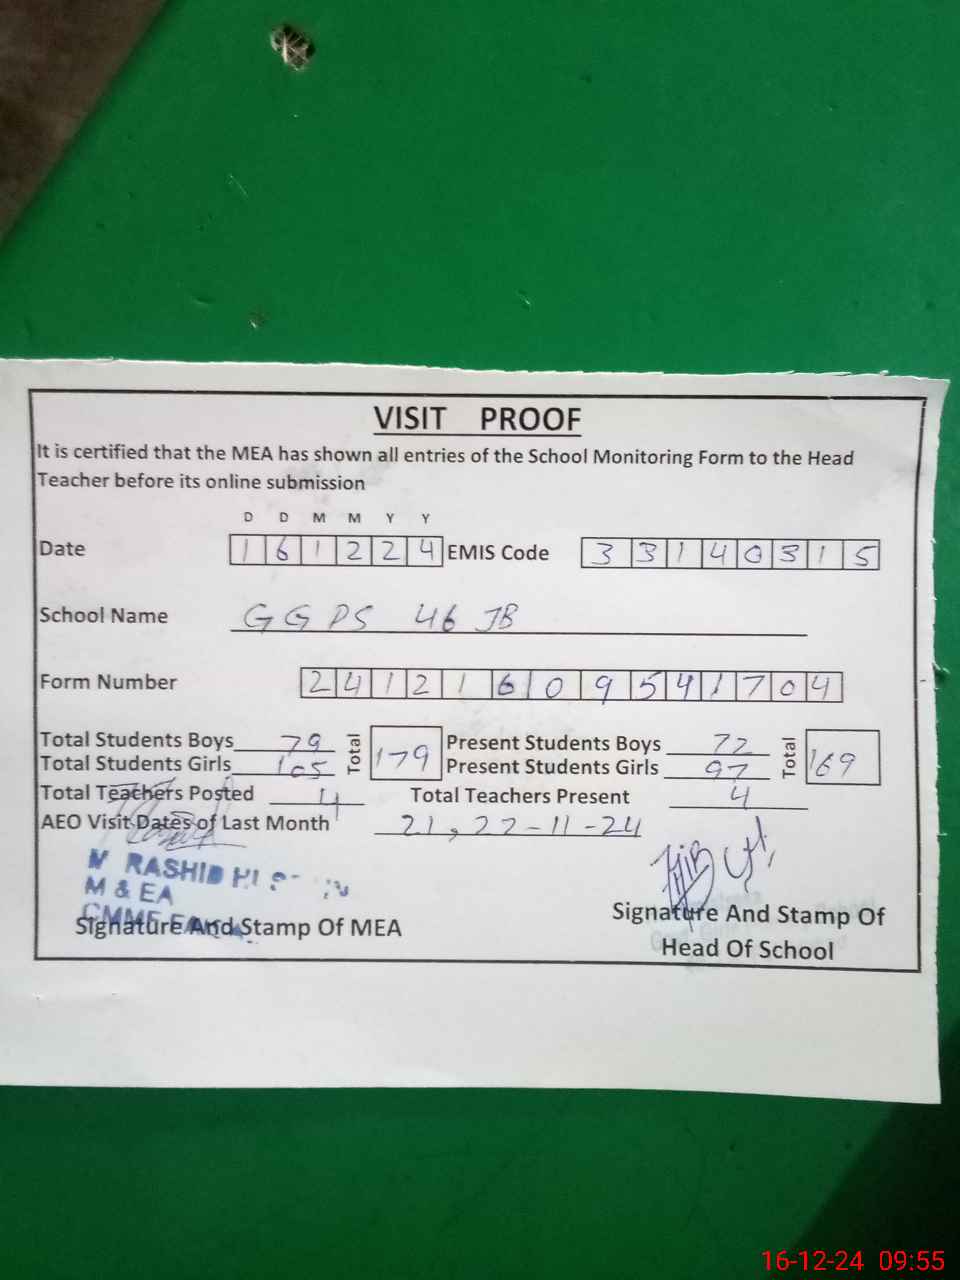 VISIT PROOF
It is certified that the MEA has shown all entries of the School Monitoring Form to the Head
Teacher before its online submission
D D M M Y Y
Date 1 6 1 2 2 4 EMIS Code 3 3 1 4 0 3 1 5
School Name GGPS 46 JB
Form Number 2 4 1 2 1 6 0 9 5 4 1 7 0 4
Total Students Boys 79 Total 179 Present Students Boys 72 Total 169
Total Students Girls 105 Present Students Girls 97
Total Teachers Posted 4 Total Teachers Present 4
AEO Visit Dates of Last Month 21, 22-11-24
M RASHID
M & EA
Signature And Stamp Of MEA
Signature And Stamp Of
Head Of School
16-12-24 09:55